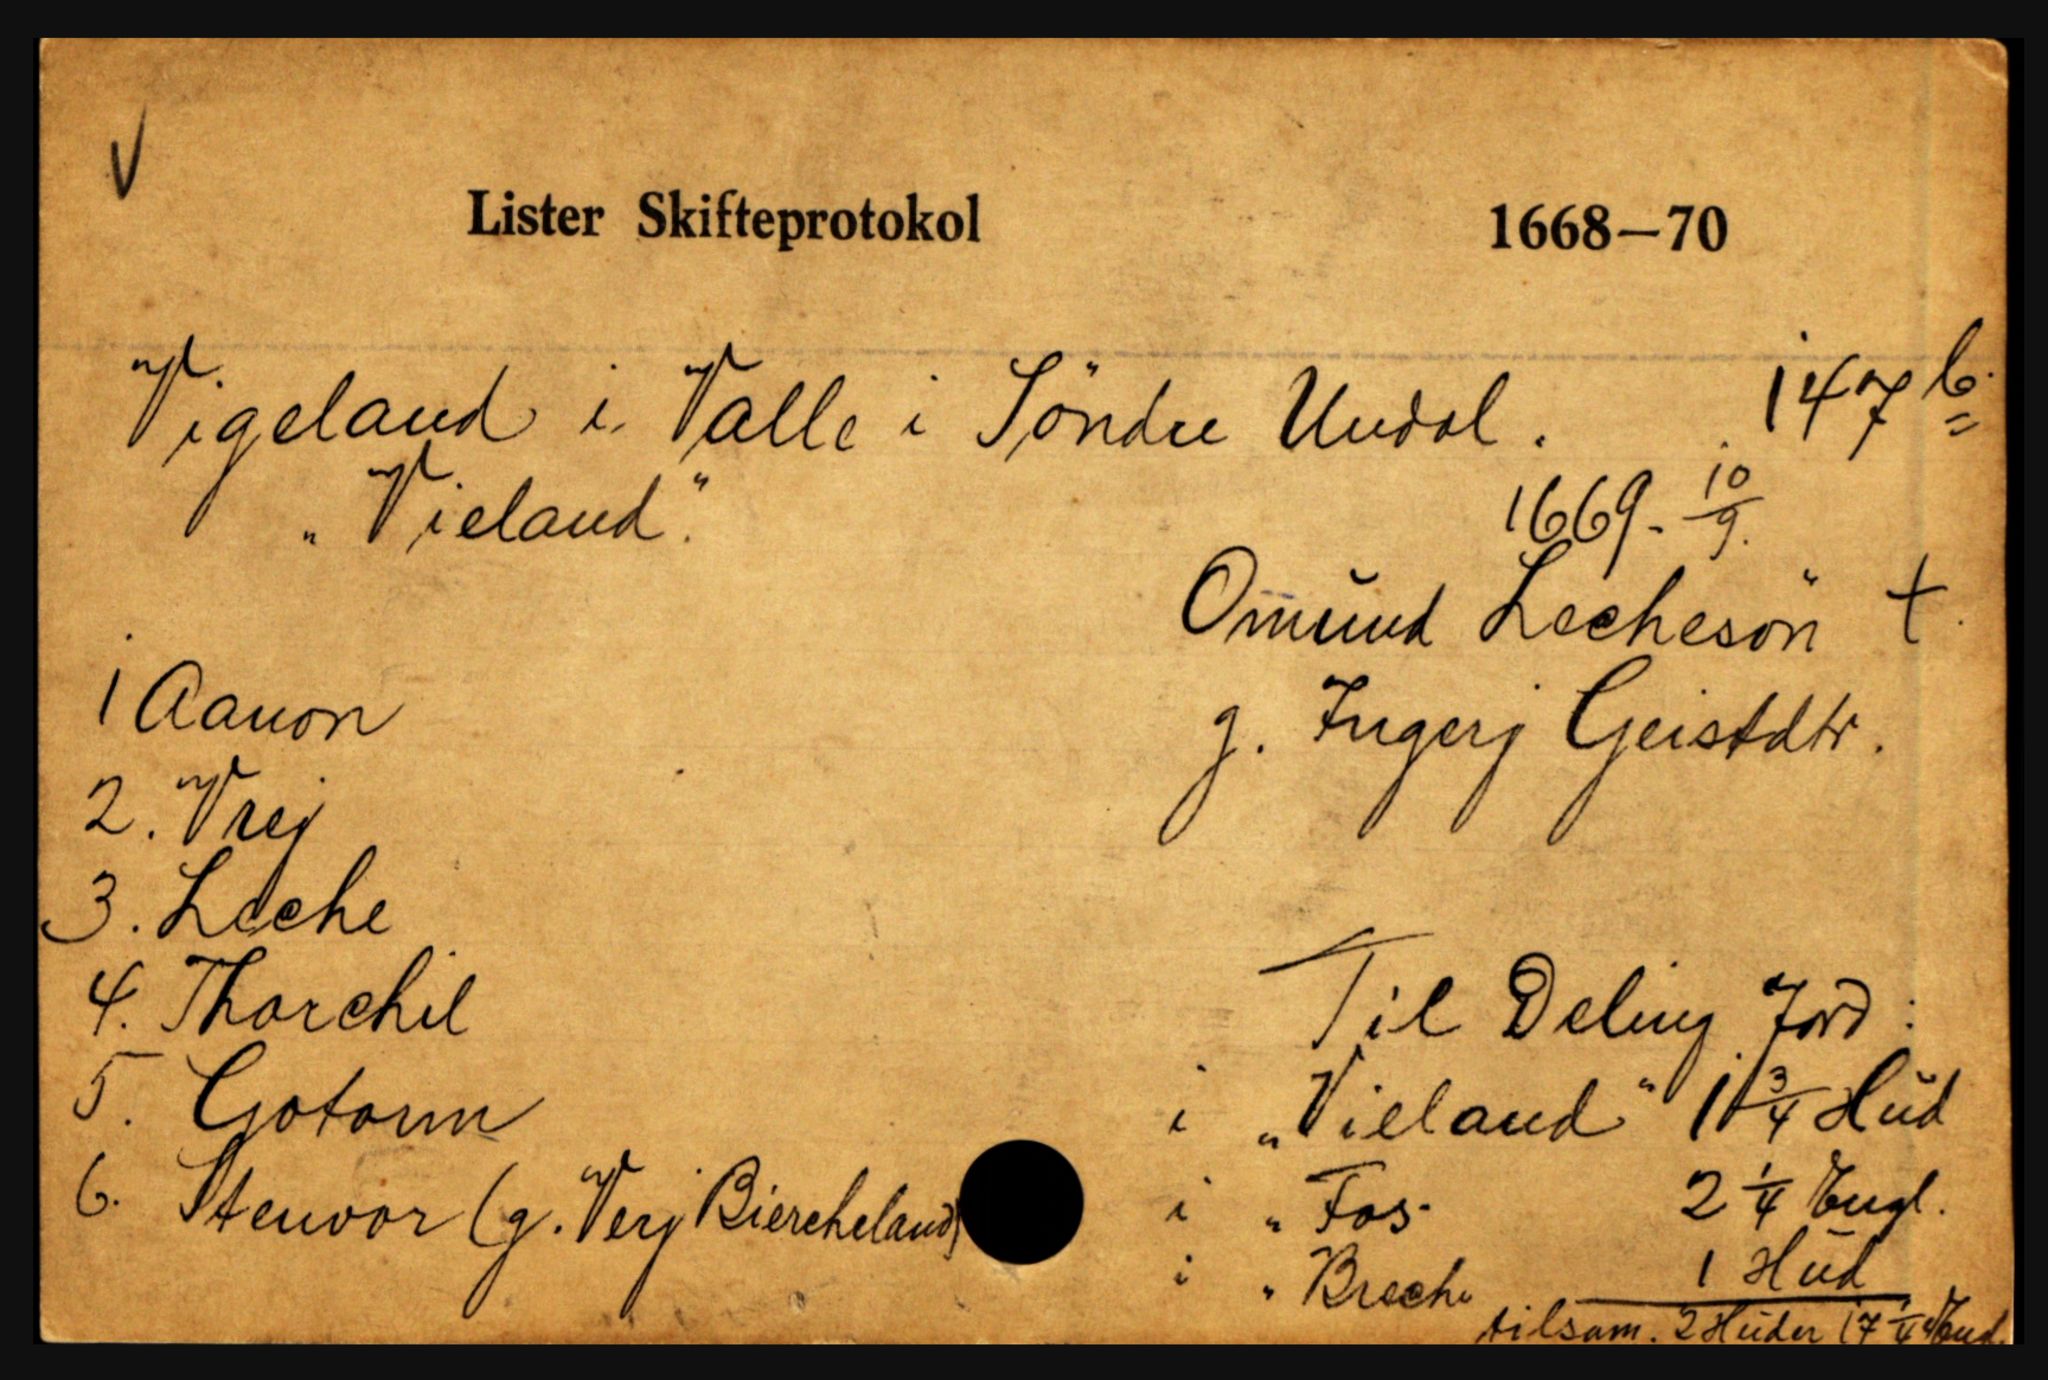 V
Lister Skifteprotokol 1668–70
Vigeland i Valle i Söndre Undal. 147 b.
"Vieland". 1669. 10/9.
Omund Lecheson †.
g. Ingerj Geistdtr.
1 Aanon
2. Vrej
3. Leche
4. Thorchil
5. Gotorm
6. Stenvor (g. Verj Biercheland)
Til Deling Jord:
i "Vieland" 1 3/4 Hud
i " Fos 2 1/4 Engl.
i " Breche 1 Hud
tilsam. 2 Huder 17 1/4